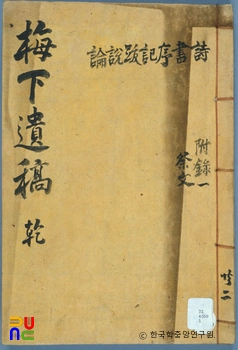 詩書序記跋說論
附錄一
祭文
共二
梅下遺稿 乾
PUNC
© 한국학중앙연구원